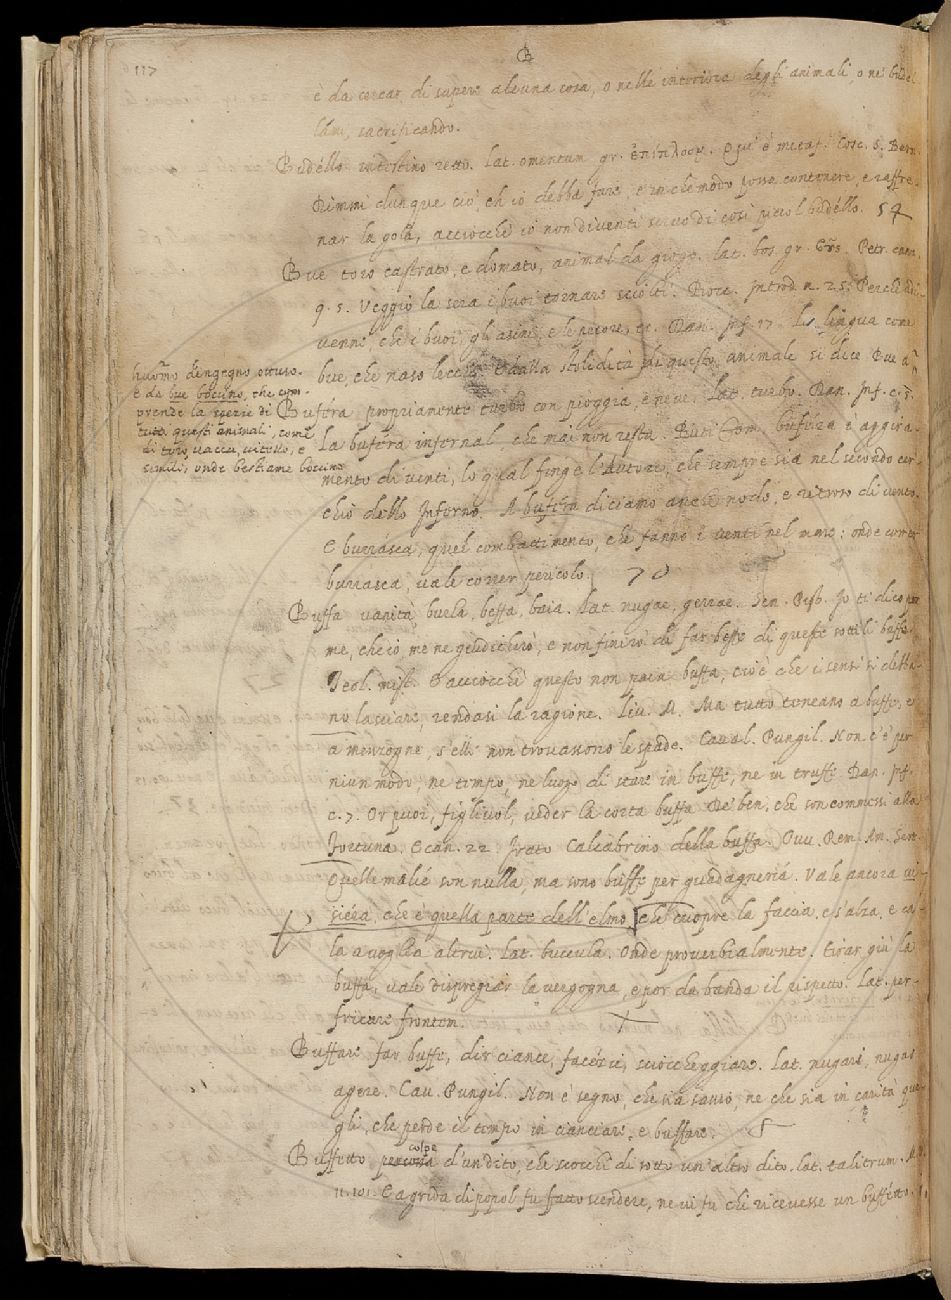 117
B
e da cercar di sapere alcuna cosa, o nelle interiora degli animali, o ne' budel-
lami, sacrificando.
Budéllo intestino retto. Lat. omentum gr. ἐπίπλοον. Qui è metaf. Bocc. S. Bern.
Dimmi dunque ciò, ch'io debba fare, e in che modo possa contenere, e raffre-
nar la gola, acciocchè io non diventi servo di così picciol budéllo. 54
Bue toro castrato, e domato, animal da giogo. lat. bos. gr. βοῦς. Petr. canz.
9. 5. Veggio la sera i buoi tornare sciolti. Bocc. Introd. n. 25. Perchè adi-
venne, che i buoi, gli asini, e le pecore, ec. Dan. Inf. 17. La lingua come
bue, che naso lecchi. E dalla stolidità di questo animale si dice Bue a n
huōmo d'ingegno ottuso.
e da bue bovino, che com-
prende la spezie di
tutti questi animali, come
di toro, vacca, vitello, e
simili, onde bestiame bovino
Buféra propriamente turbo con pioggia, e neve. Lat. turbo. Dan. Inf. c. 5.
La buféra infernal, che mai non resta. Buti Com. buféra è aggira-
mento di venti, lo qual finge l'Autore, che sempre sia nel secondo cer-
chio dello Inferno. A buféra diciamo anche nodo, e ritroso di vento.
E burrásca, quel combattimento, che fanno i venti nel mare: onde correr
burrasca, vale correr pericolo. 70
Buffa vanità burla, beffa, baia. Lat. nugae, gerrae. Sen. Pist. Io ti dico per
me, che io, me ne giudicherò, e non finirò di far beffe di queste sottili buffe.
Teol. mist. E acciocchè questo non paia buffa, cioè che i sensi si debba-
no lasciare, rendasi la ragione. Liv. M. Ma tutto torneano a buffe, e
a menzogne, s'elli non trovassono le spade. Caval. Pungil. Non c'è per
niun modo, ne tempo, ne luogo di stare in buffe, ne in truffe. Dan. Inf.
c. 7. Or puoi, figliuol, veder la corta buffa De ben, che son commessi alla
Fortuna. E can. 22 Irato Calcabrino della buffa. Ovv. Rem. Am. Sen.
Quelle malíe son nulla, ma sono buffe per guadagneria. Vale ancora vi-
siéra, che è quella parte dell'elmo, che cuopre la faccia, e s'alza, e ca-
la a voglia altrui. Lat. buccula. Onde proverbialmente. tirar giù la
buffa, vale dispregiar la vergogna, e por da banda il rispetto. Lat. per-
fricare frontem.
Buffare far buffe, dir ciance, facézie, scioccheggiare. Lat. nugari, nugas
agere. Cav. Pungil. Non è segno, che sia savio, ne che sia in carità que-
gli, che perde il tempo in cianciare, e buffare. 8
Buffetto percossa colpo d'un dito, che scocchi di sotto un'altro dito. lat. talitrum. M. V.
11. 101. E a grida di popol fu fatto scendere, ne vi fu chi ricevesse un buffetto.